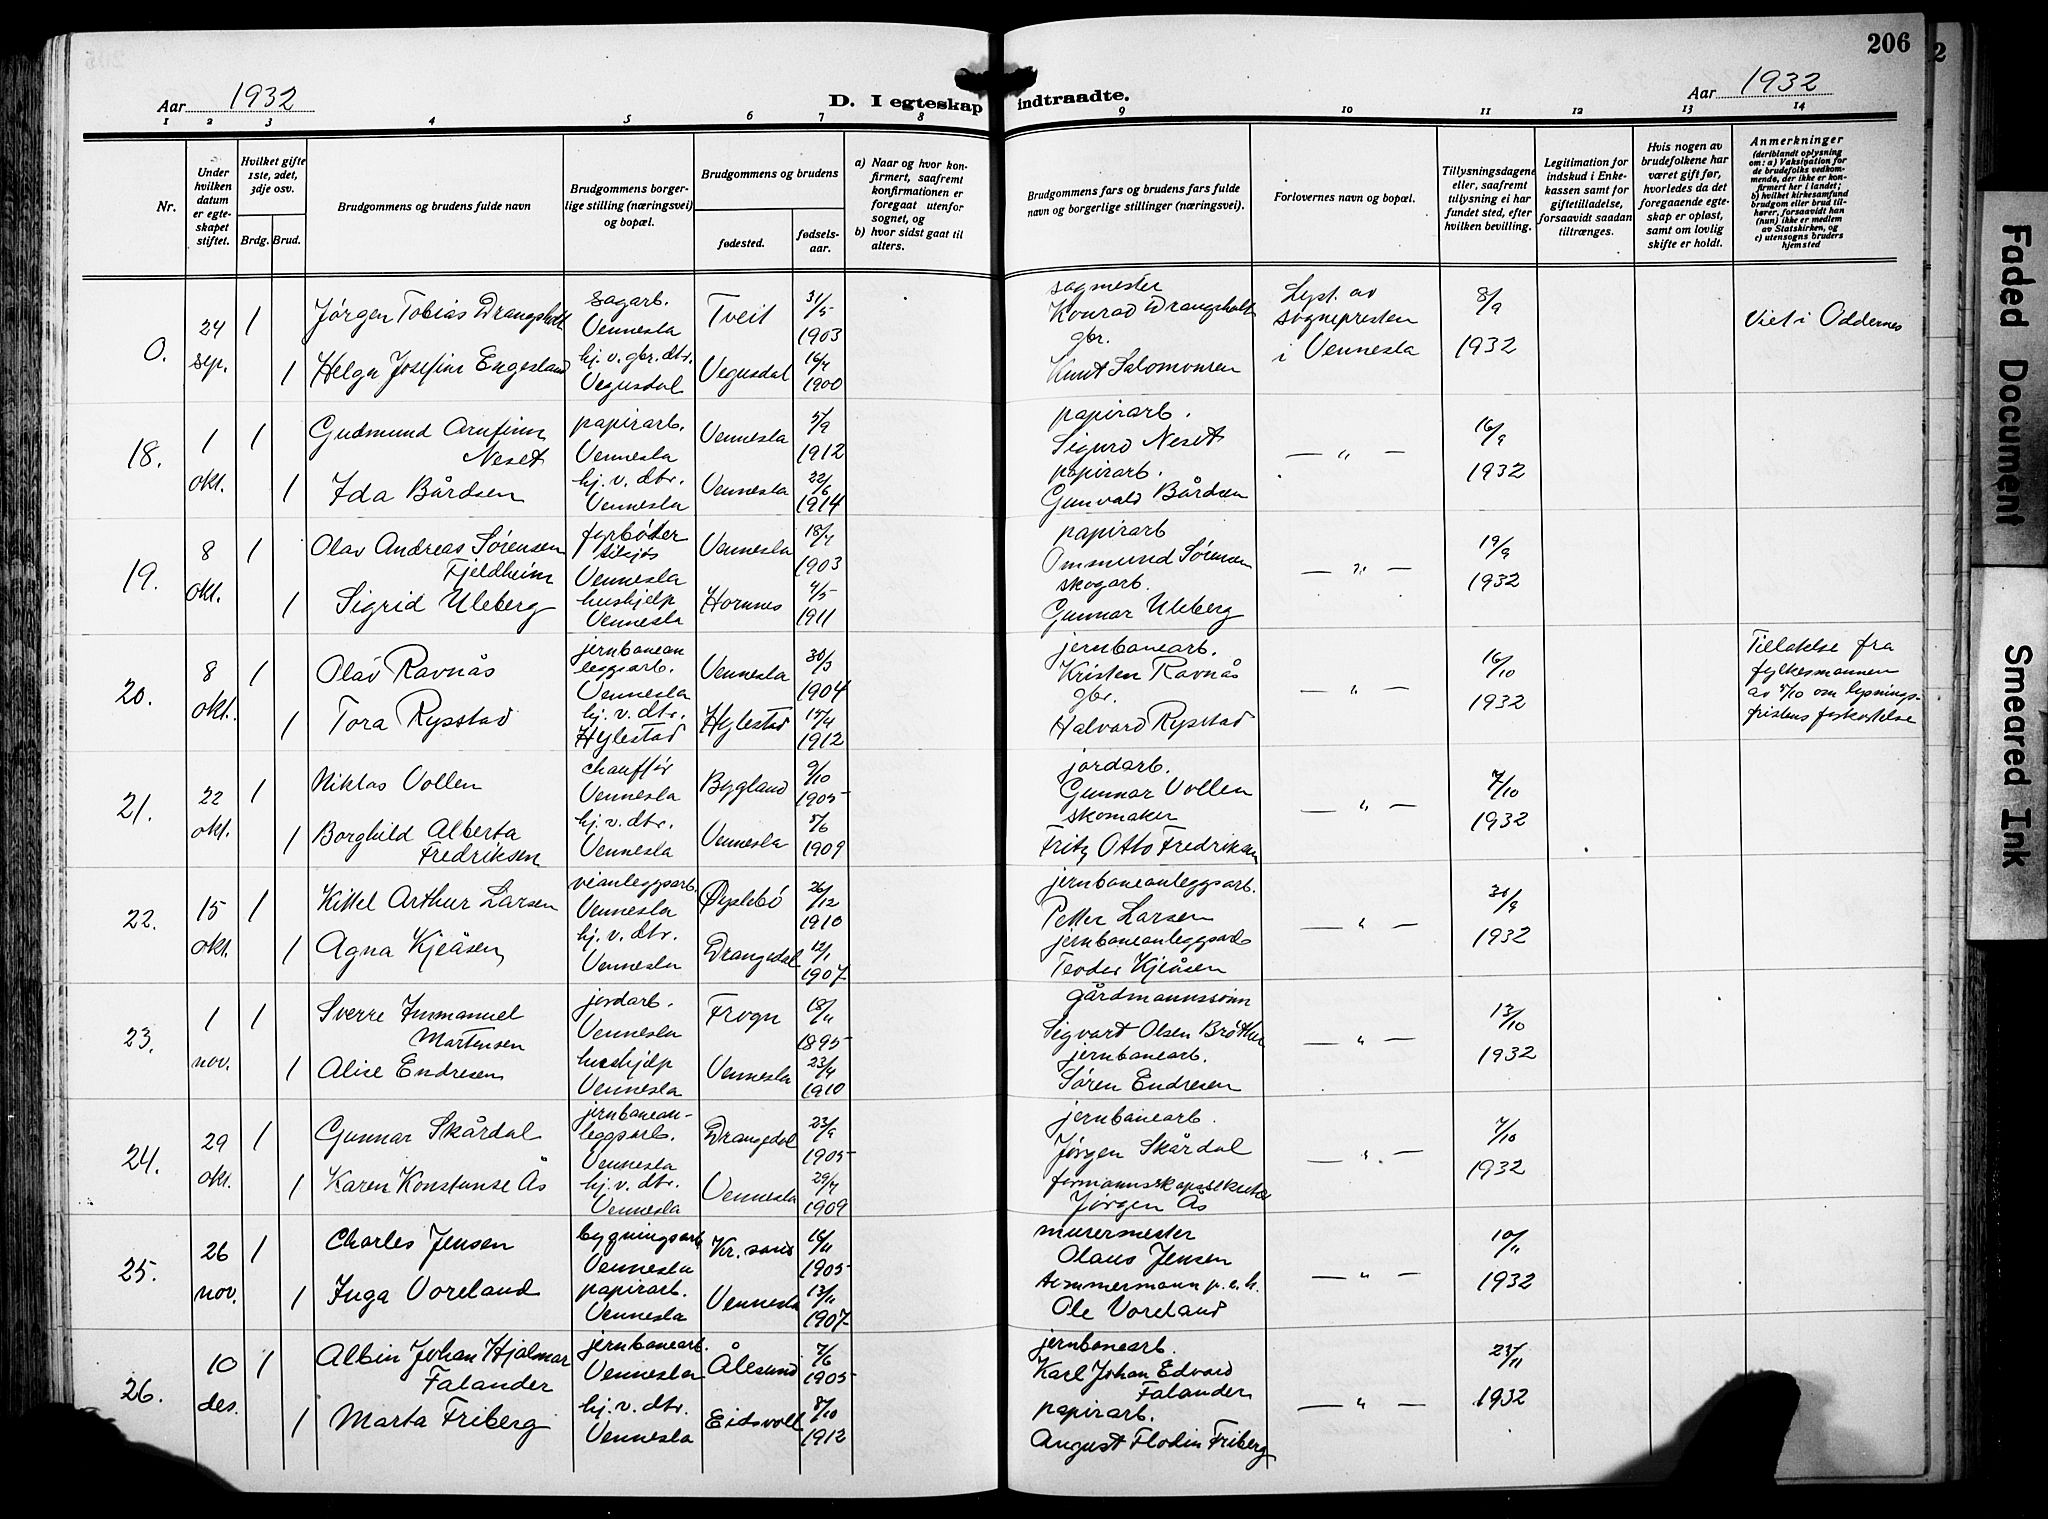 206
2
Aar 1932
D. I egteskap indtraadte.
Aar 1932
1 2 3 4 5 6 7 8 9 10 11 12 13 14
Nr.
Under hvilken datum er egteskapet stiftet.
Hvilket gifte 1ste, 2det, 3dje osv.
Brdg. Brud.
Brudgommens og brudens fulde navn
Brudgommens borgerlige stilling (næringsvei) og bopæl.
Brudgommens og brudens
fødested.
fødselsaar.
a) Naar og hvor konfirmert, saafremt konfirmationen er foregaat utenfor sognet, og
b) hvor sidst gaat til alters.
Brudgommens fars og brudens fars fulde navn og borgerlige stillinger (næringsvei).
Forlovernes navn og bopæl.
Tillysningsdagene eller, saafremt tillysning ei har fundet sted, efter hvilken bevilling.
Legitimation for indskud i Enkekassen samt for giftetilladelse, forsaavidt saadan tiltrænges.
Hvis nogen av brudefolkene har været gift før, hvorledes da det foregaaende egteskap er opløst, samt om lovlig skifte er holdt.
Anmerkninger
(deriblandt oplysning om: a) Vaksination for de brudefolks vedkommende, der ikke er konfirmert her i landet; b) hvilket kirkesamfund brudgom eller brud tilhører, forsaavidt han (hun) ikke er medlem av Statskirken, og c) utensogns bruders hjemsted
0. 24 sep. 1 Jørgen Tobias Drangsholt sagarb. Vennesla Tveit 31/5 1903 sagmester Konrad Drangsholt Lyst. av sognepresten i Vennesla 8/9 1932 Viet i Oddernes
1 Helga Josefine Engesland hj. v. gbr. dtr. Vegusdal Vegusdal 16/7 1900 gbr. Knut Salomonsen
18. 1 okt. 1 Gudmund Arnfinn Neset papirarb. Vennesla Vennesla 5/9 1912 papirarb. Sigurd Neset — " — 16/9 1932
1 Ida Bårdsen hj. v. dtr. Vennesla Vennesla 22/6 1914 papirarb. Gunvald Bårdsen
19. 8 okt. 1 Olav Andreas Sørensen Fjeldheim fyrbøter tilsjøs Vennesla Vennesla 18/7 1903 papirarb Ommund Sørensen — " — 19/9 1932
1 Sigrid Uleberg hushjelp Vennesla Hornnes 4/5 1911 skogarb. Gunnar Uleberg
20. 8 okt. 1 Olav Ravnås jernbaneanleggsarb. Vennesla Vennesla 30/3 1904 jernbanearb. Kristen Ravnås — " — 16/10 1932 Tillatelse fra fylkesmannen av 5/10 om lysningsfristens forkortelse
1 Tora Rysstad hj. v. dtr. Hylestad Hylestad 15/4 1912 gbr. Halvard Rysstad
21. 22 okt. 1 Niklas Vollen chauffør Vennesla Bygland 9/10 1905 jordarb. Gunnar Vollen — " — 7/10 1932
1 Borghild Alberta Fredriksen hj. v. dtr. Vennesla Vennesla 5/6 1909 skomaker Fritz Otto Fredriksen
22. 15 okt. 1 Kittel Arthur Larsen veianleggsarb. Vennesla Øyslebø 26/12 1910 jernbaneanleggsarb. Petter Larsen — " — 30/9 1932
1 Agna Kjeåsen hj. v. dtr. Vennesla Drangedal 12/1 1907 jernbaneanleggsarb Teodor Kjeåsen
23. 1 nov. 1 Sverre Immanuel Martensen jordarb. Vennesla Frogn 18/11 1895 gårdmannssønn Sigvart Olsen — " — 13/10 1932
1 Alise Endresen hushjelp Vennesla Vennesla 23/4 1910 jernbanearb. Søren Endresen
24. 29 okt. 1 Gunnar Skårdal jernbaneanleggsarb. Vennesla Drangedal 23/9 1905 jernbanearb. Jørgen Skårdal — " — 7/10 1932
1 Karen Konstanse Ås hj. v. dtr. Vennesla Vennesla 29/7 1909 formannskapssekretær Jørgen Ås
25. 26 nov. 1 Charles Jensen bygningsarb Vennesla Kr. sand 16/11 1905 murermester Olaus Jensen — " — 10/11 1932
1 Inga Voreland papirarb. Vennesla Vennesla 13/11 1907 tømmermann p.e.h. Ole Voreland
26. 10 des. 1 Albin Johan Hjalmar Falander jernbanearb. Vennesla Ålesund 7/6 1905 jernbanearb. Karl Johan Edvard Falander — " — 23/11 1932
1 Marta Friberg hj. v. dtr. Vennesla Eidsvoll 8/10 1912 papirarb. August Flodin Friberg
Faded Document
Smeared Ink